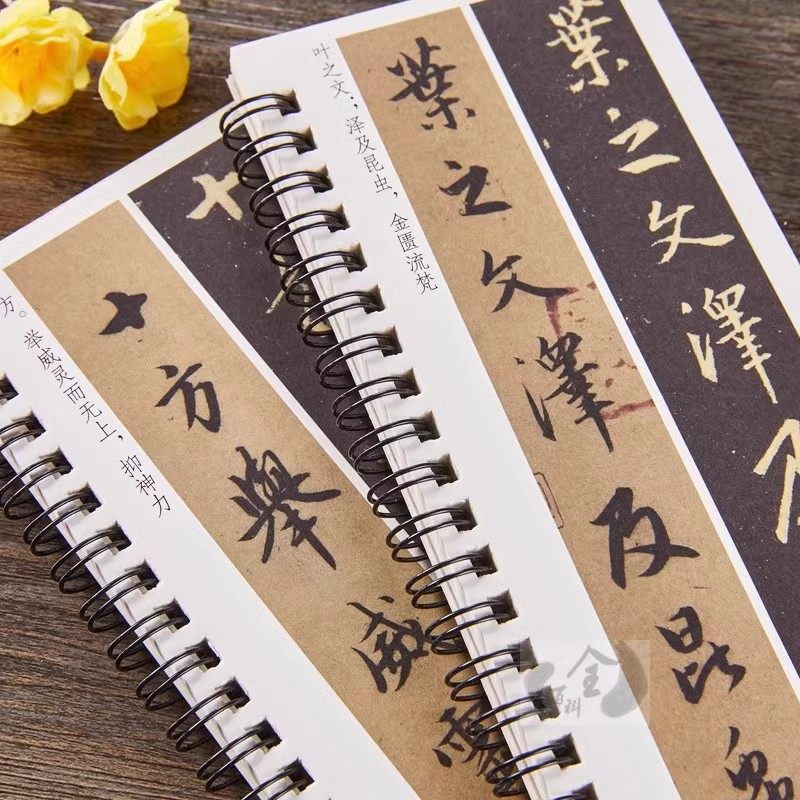 葉之文澤
葉之文澤及昆
叶之文；泽及昆虫，金匮流梵
十
十方舉威
方。举威灵而无上，抑神力
百科